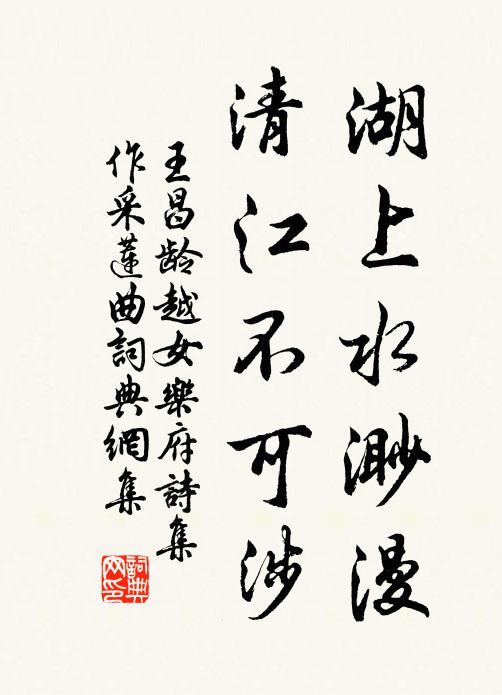 湖上水渺漫
清江不可涉
王昌龄越女樂府詩集
作采蓮曲詞典網集
詞典
网印